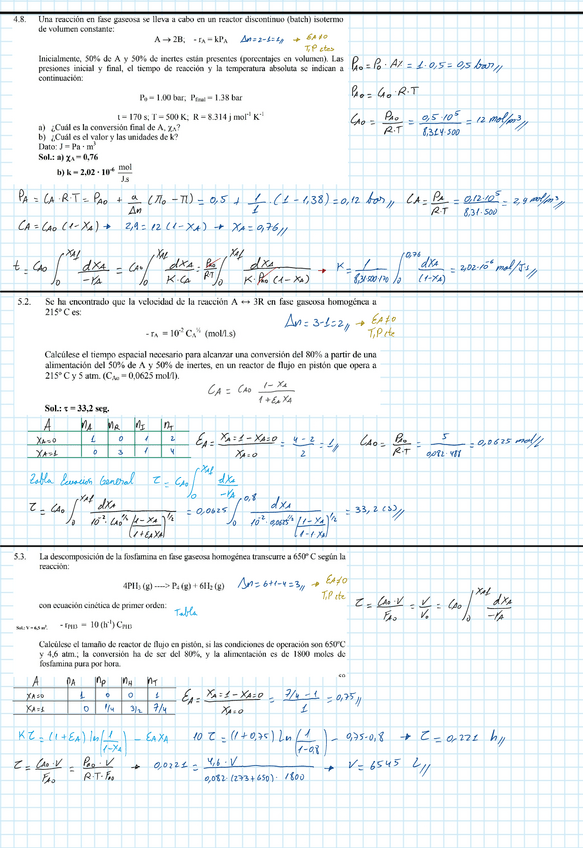 4.8. Una reacción en fase gaseosa se lleva a cabo en un reactor discontinuo (batch) isotermo
de volumen constante:
A → 2B; - rA = kPA Δn=2-1=1 → EA≠0
T,P ctes
Inicialmente, 50% de A y 50% de inertes están presentes (porcentajes en volumen). Las
presiones inicial y final, el tiempo de reacción y la temperatura absoluta se indican a
continuación:
P0 = 1.00 bar; Pfinal = 1.38 bar
t = 170 s; T = 500 K; R = 8.314 j mol-1 K-1
a) ¿Cuál es la conversión final de A, χA?
b) ¿Cuál es el valor y las unidades de k?
Dato: J = Pa · m3
Sol.: a) χA = 0,76
b) k = 2,02 · 10-6 mol/J.s
PA0 = P0 · A% = 1 · 0,5 = 0,5 bar
PA0 = CA0 · R·T
CA0 = PA0/R·T = 0,5·10^5/8,314·500 = 12 mol/m3
PA = CA·R·T = PA0 + a/Δn (π0 - π) = 0,5 + 1/1 · (1 - 1,38) = 0,12 bar CA = PA/R·T = 0,12·10^5/8,31·500 = 2,9 mol/m3
CA = CA0 (1-XA) → 2,9 = 12 (1-XA) → XA = 0,76
t = CA0 ∫0^XAf dXA/-rA = CA0 ∫0^XAf dXA/K·CA = PA0/RT ∫0^XAf dXA/K·PA0 (1-XA) → K = 1/8,31·500·170 ∫0^0,76 dXA/(1-XA) = 2,02·10^-6 mol/J·s
5.2. Se ha encontrado que la velocidad de la reacción A ↔ 3R en fase gaseosa homogénea a
215º C es:
- rA = 10-2 CA½ (mol/l.s)
Δn = 3-1=2 → EA≠0
T,P cte
Calcúlese el tiempo espacial necesario para alcanzar una conversión del 80% a partir de una
alimentación del 50% de A y 50% de inertes, en un reactor de flujo en pistón que opera a
215º C y 5 atm. (CA0 = 0,0625 mol/l).
CA = CA0 1-XA/1+EA XA
Sol.: τ = 33,2 seg.
A nA nR nI nT
XA=0 1 0 1 2
XA=1 0 3 1 4
EA = XA=1 - XA=0/XA=0 = 4-2/2 = 1 CA0 = PA0/R·T = 5/0,082·488 = 0,0625 mol/L
Tabla Ecuación General τ = CA0 ∫0^XAf dXA/-rA
τ = CA0 ∫0^XAf dXA/10^-2·CA0^1/2 (1-XA/1+EAXA)^1/2 = 0,0625 ∫0^0,8 dXA/10^-2·0,0625^1/2 (1-XA/1-1XA)^1/2 = 33,2 (s)
5.3. La descomposición de la fosfamina en fase gaseosa homogénea transcurre a 650º C según la
reacción:
4PH3 (g) ----> P4 (g) + 6H2 (g) Δn=6+1-4=3 → EA≠0
T,P cte
con ecuación cinética de primer orden: Tabla
- rPH3 = 10 (h-1) CPH3
τ = CA0·V/FA0 = V/V0 = CA0 ∫0^XAf dXA/-rA
Calcúlese el tamaño de reactor de flujo en pistón, si las condiciones de operación son 650ºC
y 4,6 atm.; la conversión ha de ser del 80%, y la alimentación es de 1800 moles de
fosfamina pura por hora.
A nA nP nH nT
XA=0 1 0 0 1
XA=1 0 1/4 3/2 7/4
EA = XA=1 - XA=0/XA=0 = 7/4 - 1/1 = 0,75
Kτ = (1+EA) ln(1/1-XA) - EAXA 10τ = (1+0,75) ln(1/1-0,8) - 0,75·0,8 → τ = 0,221 h
τ = CA0·V/FA0 = PA0·V/R·T·FA0 → 0,0221 = 4,6·V/0,082·(273+650)·1800 → V = 6545 L